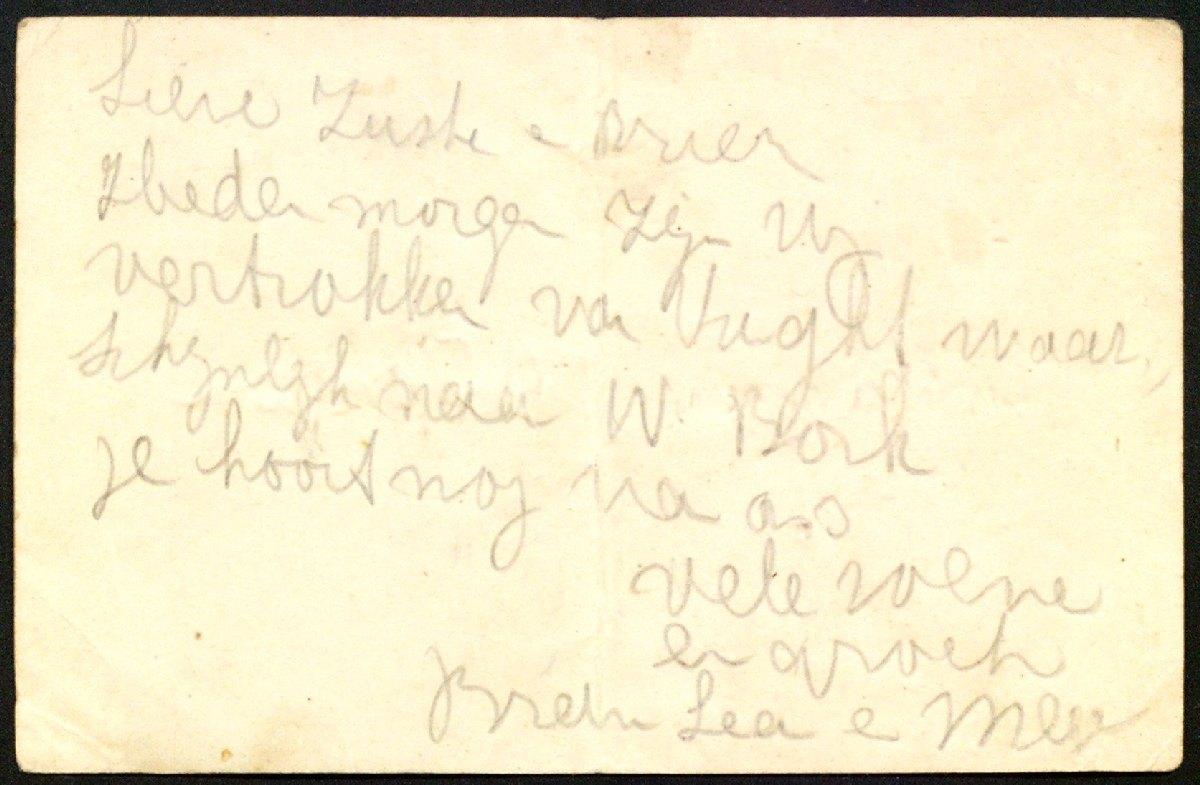 Lieve Zuste e Bruer
Heden morgen zijn Wy
vertrokken van Vught waar,
schynlyk naar W. Bork
je hoort nog van ons
vele zoene
en groeten
Lea e